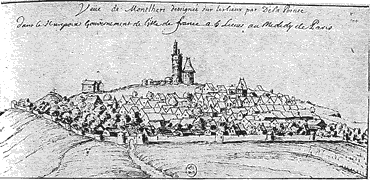 Veüe de Montlhery dessignée sur les lieux par De la Pointe
dans le Hurepoix Gouvernement de l'isle de france a 6 Lieues au Midy de Paris